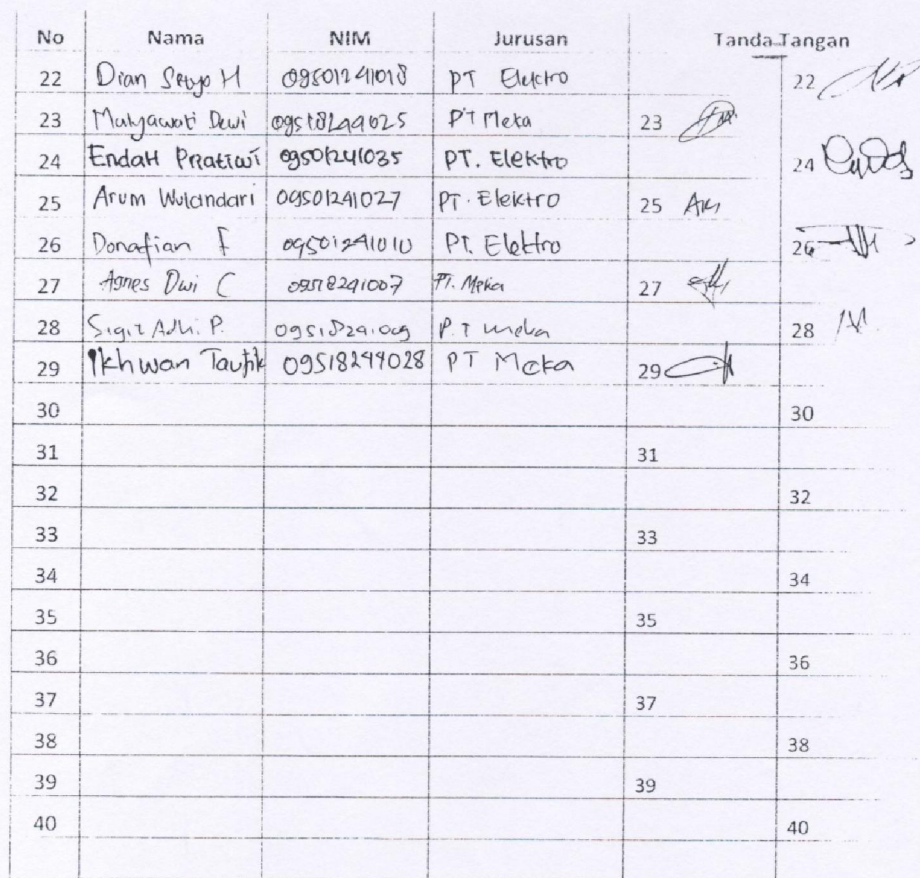 No Nama NIM Jurusan Tanda Tangan
22 Dian Setyo H 09501241018 PT Elektro 22
23 Mulyawati Dewi 09518244025 PT Meka 23
24 EndaH Pratiwi 09501241035 PT. Elektro 24
25 Arum Wulandari 09501241027 PT. Elektro 25
26 Donafian F 09501241010 PT. Elektro 26
27 Agnes Dwi C 09518241007 PT. Meka 27
28 Sigit Adhi. P. P.T meka 28
29 Ikhwan Taufik 09518244028 PT Meka 29
30 30
31 31
32 32
33 33
34 34
35 35
36 36
37 37
38 38
39 39
40 40